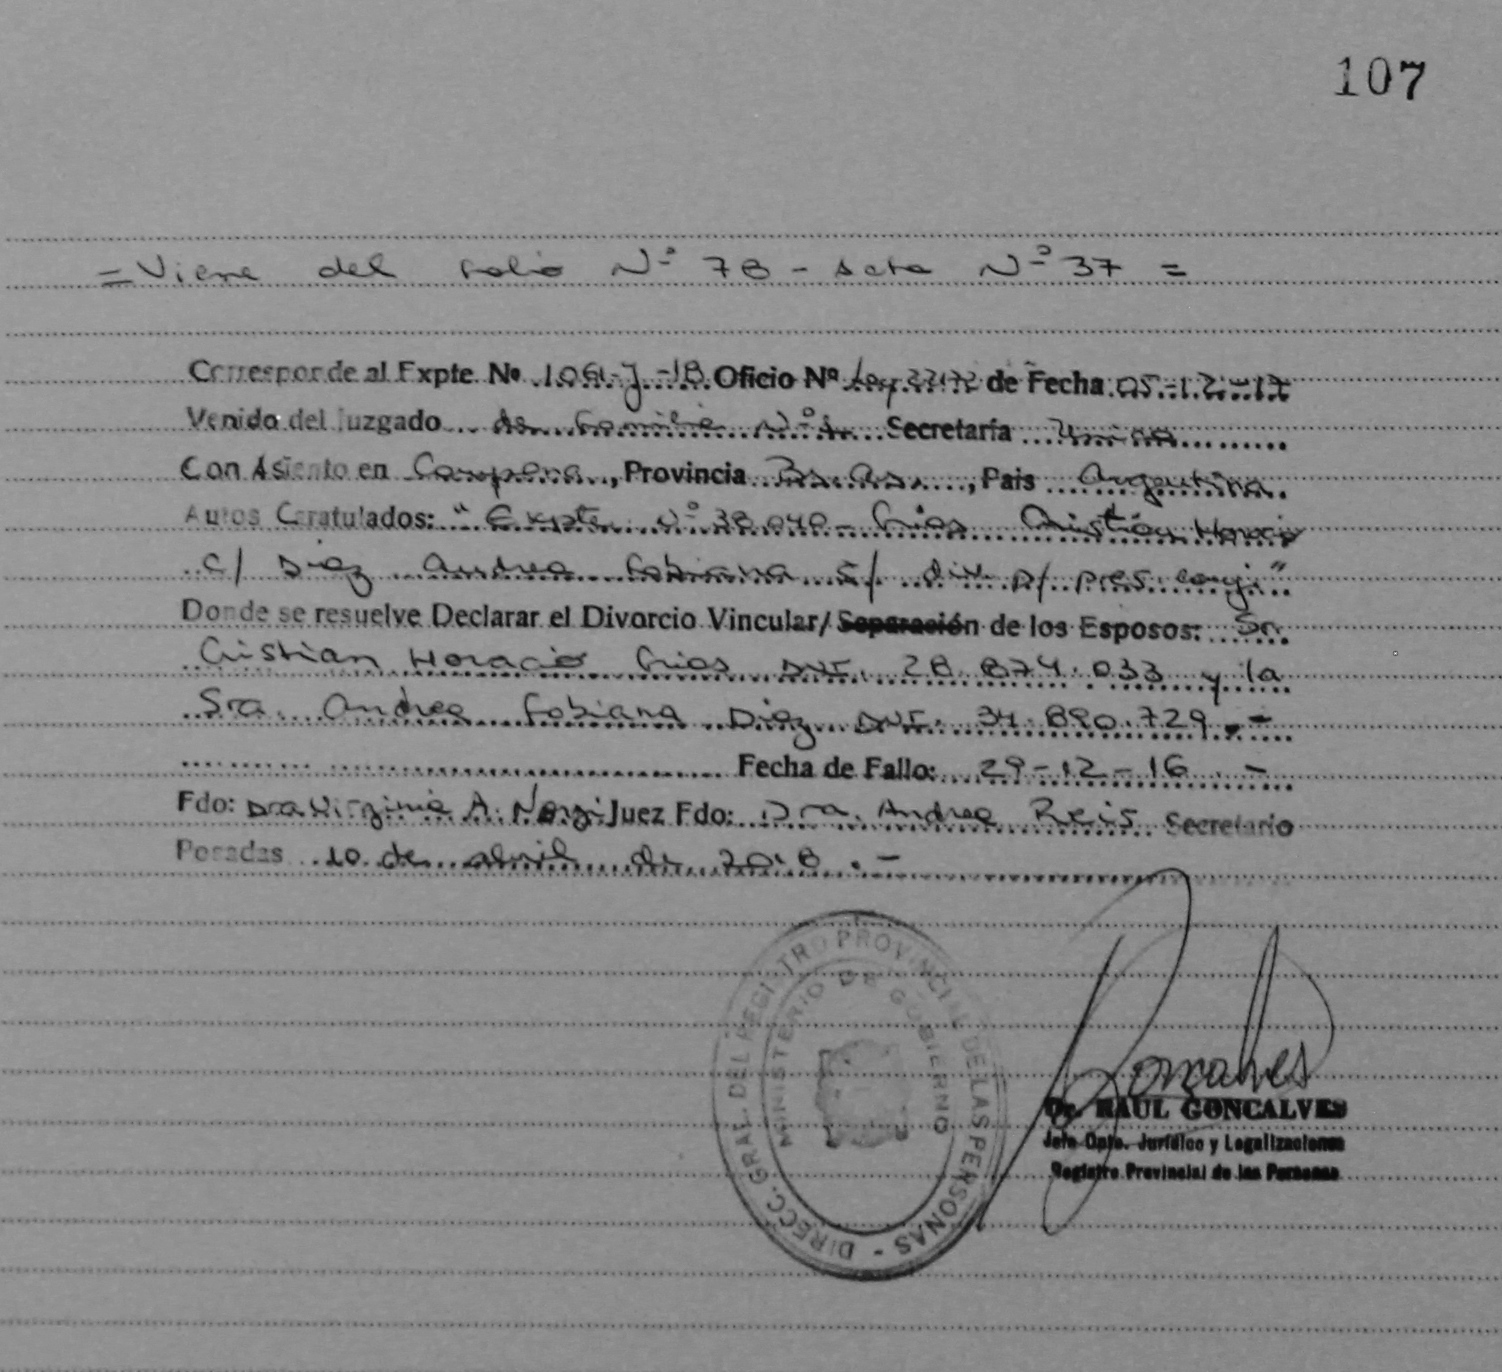 107
= Viene del folio Nº 78 - acta Nº 37 =
Corresponde al Expte. Nº 106-J-18 Oficio Nº Ley 22172 de Fecha 05-12-17
Venido del Juzgado de Familia Nº 1 Secretaría Única
Con Asiento en Campana, Provincia Bs. As., Pais Argentina.
Autos Caratulados: "Expte. Nº 38.040- Cristian Horacio
c/ Diez Andrea Fabiana s/ div. p/ pres. conj."
Donde se resuelve Declarar el Divorcio Vincular/ Separación de los Esposos: Sr.
Cristian Horacio DNI. 28.874.033 y la
Sra. Andrea Fabiana Diez DNI. 34.890.729.-
Fecha de Fallo: 29-12-16.-
Fdo: Dra Virginia A. Juez Fdo: Dra. Andrea Reis Secretario
Posadas 10 de abril de 2018.-
DIRECC. GRAL. DEL REGISTRO PROVINCIAL DE LAS PERSONAS -
MINISTERIO DE GOBIERNO
Goncalves
Dr. RAUL GONCALVES
Jefe Dpto. Jurídico y Legalizaciones
Registro Provincial de las Personas